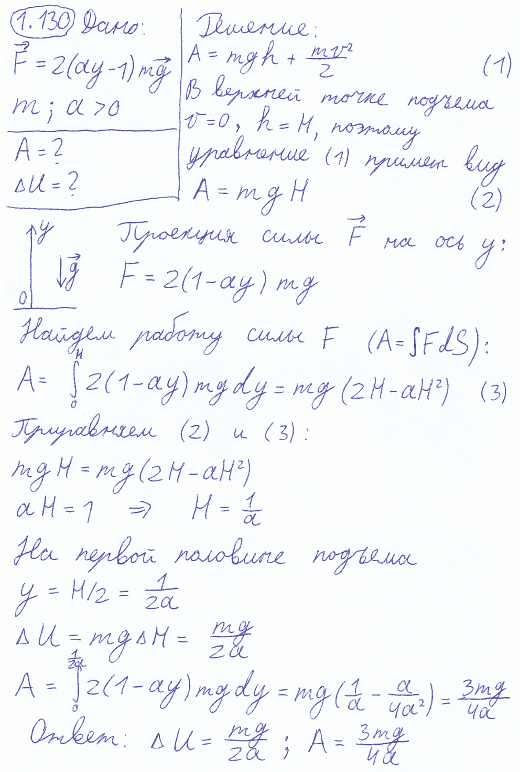 1.130 Дано:
F⃗ = 2(ay−1)mg⃗
m; a>0
A = ?
ΔU = ?
Решение:
A = mgh + mv²/2 (1)
В верхней точке подъема
v=0, h=H, поэтому
уравнение (1) примет вид
A = mgH (2)
y
g⃗
0
Проекция силы F⃗ на ось y:
F = 2(1−ay)mg
Найдем работу силы F (A=∫FdS):
A = ∫₀ᴴ 2(1−ay)mgdy = mg(2H−aH²) (3)
Приравняем (2) и (3):
mgH = mg(2H−aH²)
aH = 1 ⇒ H = 1/a
На первой половине подъема
y = H/2 = 1/2a
ΔU = mgΔH = mg/2a
A = ∫₀^(1/2a) 2(1−ay)mgdy = mg(1/a − a/4a²) = 3mg/4a
Ответ: ΔU = mg/2a; A = 3mg/4a